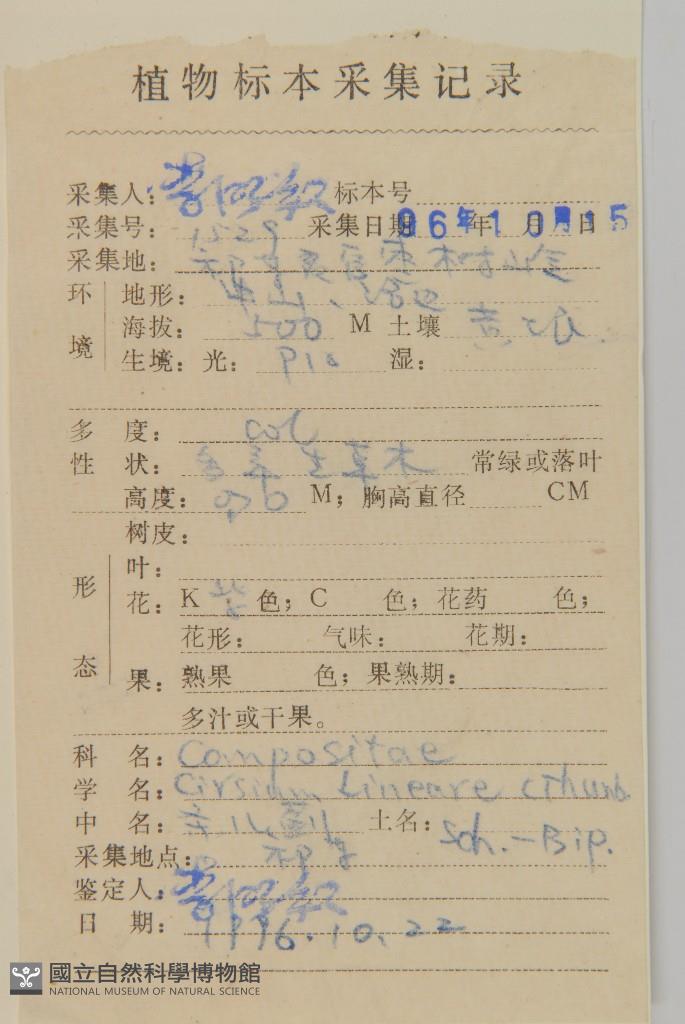 植物标本采集记录
采集人: 标本号
采集号: 1529 采集日期 96年年10月月15日
采集地:
环境 地形: 山、
海拔: 500 M 土壤 黄
生境: 光: 湿:
多度: col
性状: 多年生草本 常绿或落叶
高度: M; 胸高直径 CM
形态 树皮:
叶:
花: K 紫 色; C 色; 花药 色;
花形: 气味: 花期:
果: 熟果 色; 果熟期:
多汁或干果。
科名: Compositae
学名: Cirsium Lineare (Thunb.
中名: 土名: Sch.-Bip.
采集地点: 祁
鉴定人:
日期: 1996.10.22
國立自然科學博物館
NATIONAL MUSEUM OF NATURAL SCIENCE